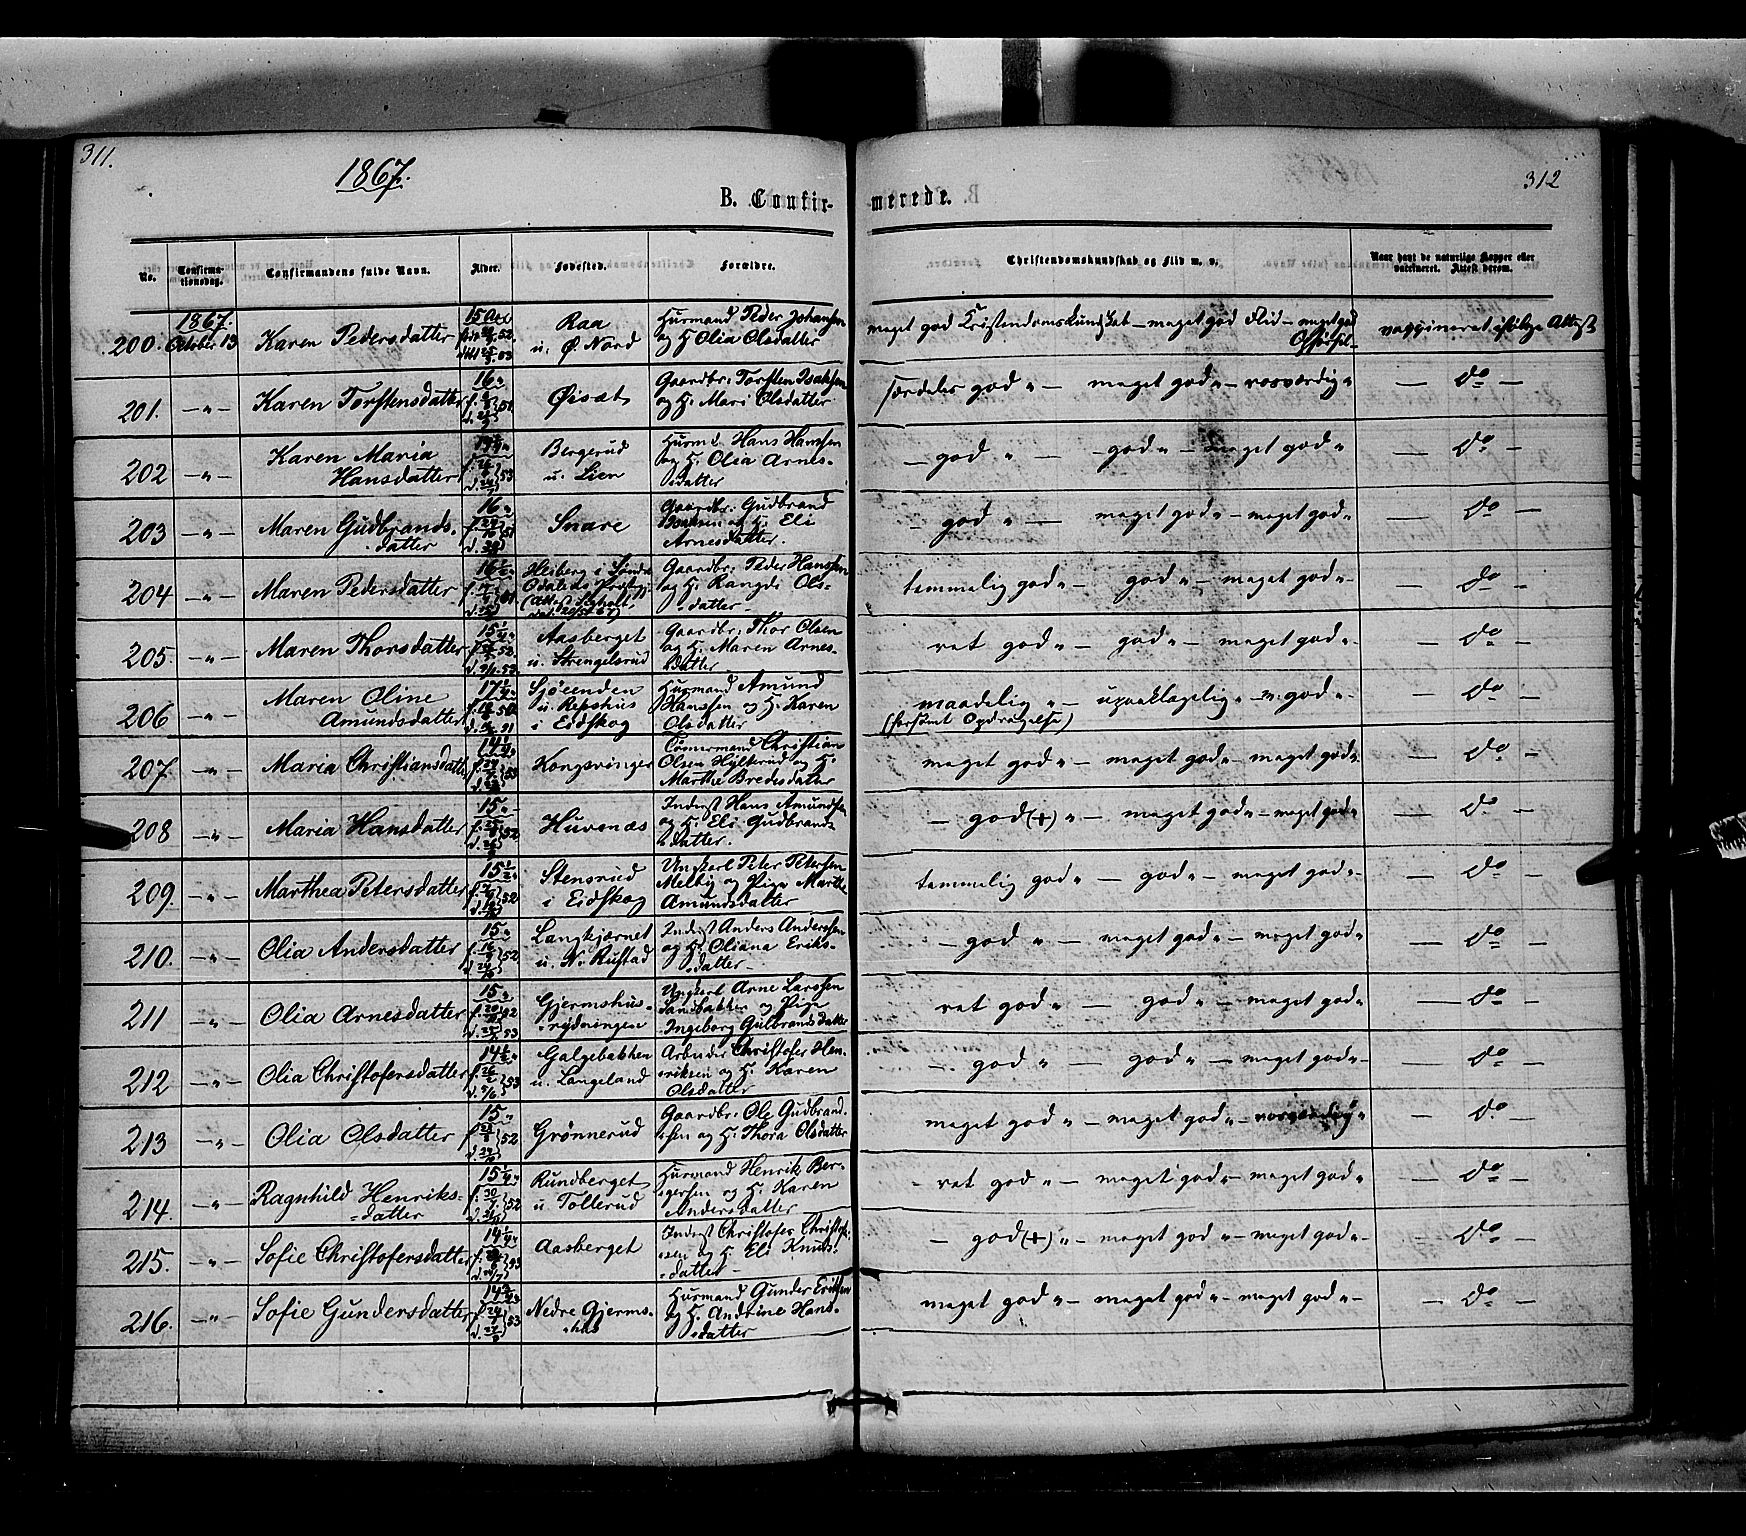 311.
1867.
312
B. Confir-
merede.
No.
Confirma-
tionsdag.
Confirmandens fulde Navn.
Alder.
Fødested.
Forældre.
Christendomskundskab og Flid m. v.
Naar havt de naturlige Kopper eller
vaccineret. Attest derom.
1867.
200. October 13 Karen Pedersdatter
Raa
u. Ø. Nord
Huusmand Peder Johansen
og H. Olia Olsdatter
meget god Kristendomskundskab – meget god Flid – meget god
Opførsel
vaccineret ifølge Attest
201. —„— Karen Torstensdatter 16
Øisæt
Gaardbr: Torsten Isaksen
og H. Mari Olsdatter
særdeles god „ – meget god „ – rosværdig „
— do —
202 —„— Karen Maria
Hansdatter
Bergerud
u. Lien
Huusmd. Hans Hanssen
og H. Olia Arnes-
datter
– god „ – god „ – meget god „
— do —
203 —„— Maren Gudbrands-
datter
16
Snare
Gaardbr: Gudbrand
og H. Eli
Arnesdatter.
– god „ – meget god „ – meget god „
— do —
204 —„— Maren Pedersdatter 16½
Gaardbr: Peder Hanssen
og H. Rangdi Ols-
datter
temmelig god „ – god „ – meget god „
— do —
205. —„— Maren Thorsdatter 15¼
Aasberget
u. Strengelsrud
Gaardbr: Thor Olsen
og H. Maren Arnes-
datter
ret god „ – god „ – meget god „
— do —
206 —„— Maren Oline
Amundsdatter
17¼
Sjøeenden
u. Repshus
i Eidskog
Huusmand Amund
Hanssen og H. Karen
Olsdatter
maadelig „ – upaaklagelig „ – m. god „
(forsømt Opdragelse)
— do —
207. —„— Maria Christiansdatter 14¼
Kongsvinger
Tømmermand Christian
Olsen og H.
Marthe Bredesdatter
meget god „ – meget god „ – meget god „
— do —
208 —„— Maria Hansdatter 15
Huvenæs
Inderst Hans Amundsen
og H. Eli Gudbrands-
datter.
– god (+) „ – meget god „ – meget god „
— do —
209. —„— Marthea Petersdatter 15½
Stensrud
i Eidskog
Ungkarl Peter Petersen
Melby og Pige Marthe
Amundsdatter
temmelig god „ – god „ – meget god „
— do —
210. —„— Olia Andersdatter 15
Langkjernet
u. N. Rustad
Inderst Anders Anderssen
og H. Oliana Eriks-
datter
– god „ – meget god „ – meget god „
— do —
211 —„— Olia Arnesdatter 15
Gjermshus-
rydningen
Ungkarl Arne Larssen
Sandbakken og Pige
Ingeborg Gulbrandsdatter
ret god „ – god „ – meget god „
— do —
212 —„— Olia Christofersdatter 14½
Galgebakken
u. Langeland
Arbeider Christofer Hen-
riksen og H. Karen
Olsdatter
– god „ – god „ – meget god „
— do —
213 —„— Olia Olsdatter 15
Grønnerud
Gaardbr: Ole Gudbrand-
sen og H. Thora Olsdatter
meget god „ – meget god „ – rosværdig „
— do —
214. —„— Ragnhild Henriks-
datter
15¼
Rundberget
u. Tollerud
Huusmand Henrik Ber-
gersen og H. Karen
Andersdatter
– ret god „ – meget god „ – meget god „
— do —
215. —„— Sofie Christofersdatter 14¼
Aasberget
Inderst Christofer Christof-
sen og H. Eli Knuds-
datter
– god (+) „ – meget god „ – meget god „
— do —
216. —„— Sofie Gundersdatter
Nedre Gjerms-
hus
Huusmand Gunder Eriksen
og H. Andrine Hans-
datter
meget god „ – meget god „ – meget god „
— do —